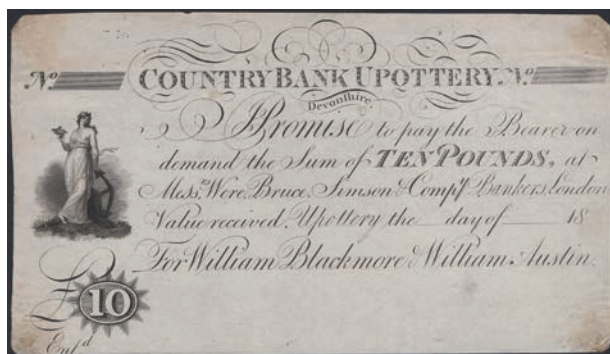 No COUNTRY BANK UPOTTERY. No
Devonshire.
I Promise to pay the Bearer on
demand the Sum of TEN POUNDS, at
Messrs Were, Bruce, Simson & Compy Bankers, London
Value received. Upottery the day of 18
For William Blackmore & William Austin.
£ 10
Entd